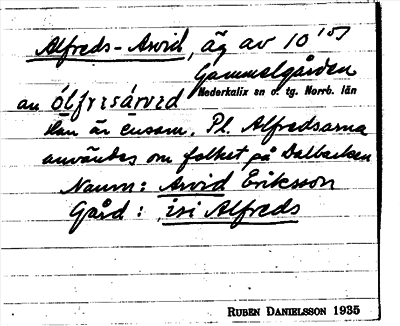 Alfreds-Arvid, äg av 10
Gammelgården
an ólfrisárvıd Nederkalix sn o. tg. Norrb. län
Han är ensam. Pl. Alfredsarna
användes om folket på Dalbacken
Namn: Arvid Eriksson
Gård: isi Alfreds
RUBEN DANIELSSON 1935